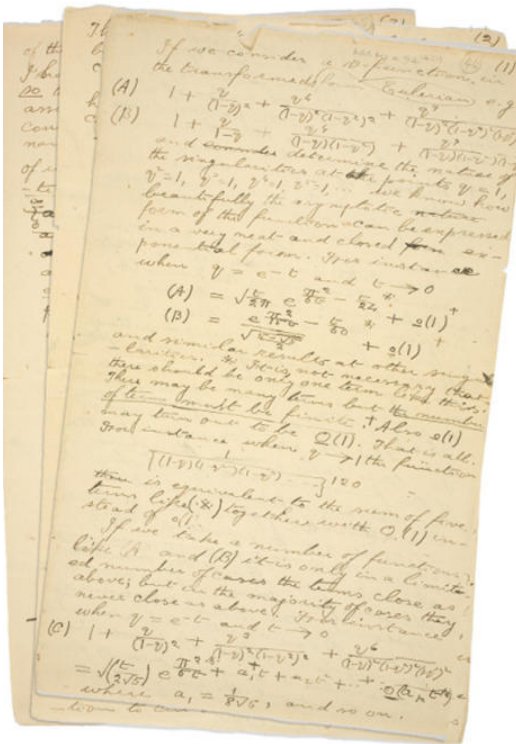 (2)
(1)
If we consider a ϑ-function in
the transformed Eulerian e.g.
(A) 1 + q/(1-q)² + q⁴/(1-q)²(1-q²)² + q⁹/(1-q)²(1-q²)²(1-q³)²
(B) 1 + q/1-q + q⁴/(1-q)(1-q²) + q⁹/(1-q)(1-q²)(1-q³)
and determine the nature of
the singularities at the points q = 1,
q² = 1, q³ = 1, q⁴ = 1, ... we know how
beautifully the asymptotic
form of the function can be expressed
in a very neat and closed ex-
ponential form. For instance
when q = e^-t and t → 0
(A) = √(t/2π) e^(π²/6t - t/24) + o(1)
(B) = e^(π²/15t - t/60) / √(5-√5/2) + o(1)
and similar results at other singu-
-larities. * It is not necessary that
there should be only one term like this.
There may be many terms but the number
of terms must be finite. † Also o(1)
may turn out to be O(1). That is all.
For instance when q → 1 the function
1/{(1-q)(1-q²)(1-q³) ...}¹²⁰
is equivalent to the sum of five
terms like (*) together with O(1) in-
stead of o(1).
If we take a number of functions
like (A) and (B) it is only in a limit-
ed number of cases the terms close as
above; but in the majority of cases they
never close as above. For instance
when q = e^-t and t → 0
(C) 1 + q/(1-q)² + q³/(1-q)²(1-q²)² + q⁶/(1-q)²(1-q²)²(1-q³)²
= √(t/2π√5) e^(π²/5t + a₁t + a₂t² + ... + O(aₖtᵏ))
where a₁ = 1/8√5, and so on.